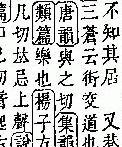 不知其居 又巷
三蒼云街交道也
唐韻與之切集韻
類篇樂也楊子方
几切𠀤忌上聲說